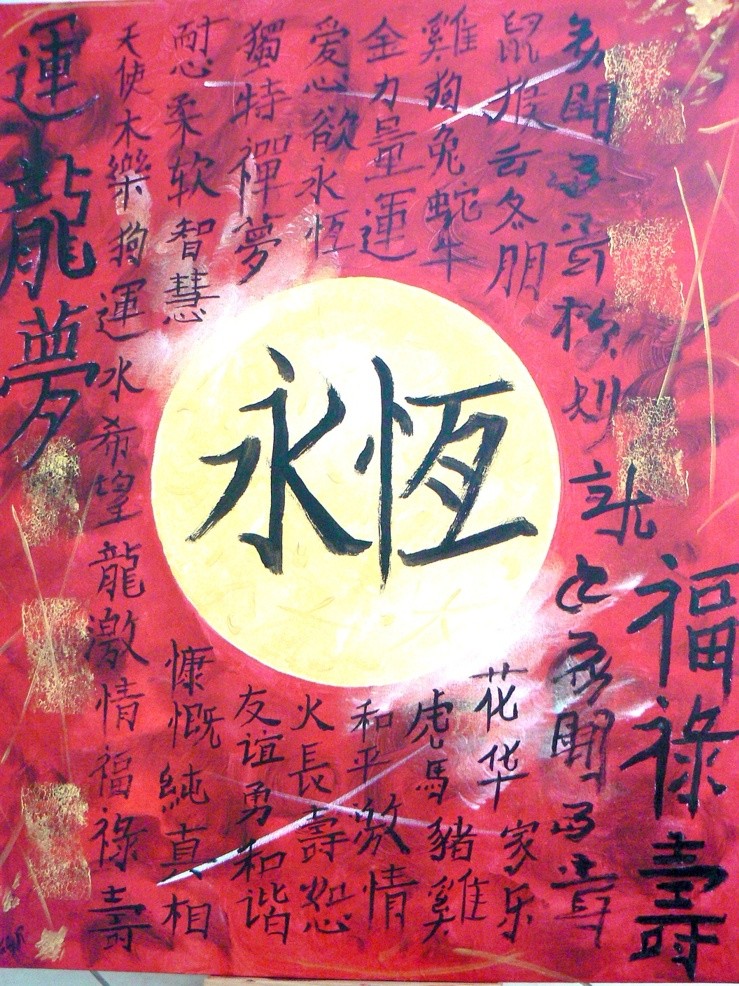 鼠猴云冬朋
雞狗兔蛇牛
金力量運
爱心欲永恆
獨特禪夢
耐心柔软智慧
天使木樂狗運水希望龍激情福祿壽
運龍夢
永恆
福祿壽
花华家乐
虎馬豬雞
和平激情
火長壽恕
友谊勇和谐
慷慨純真相